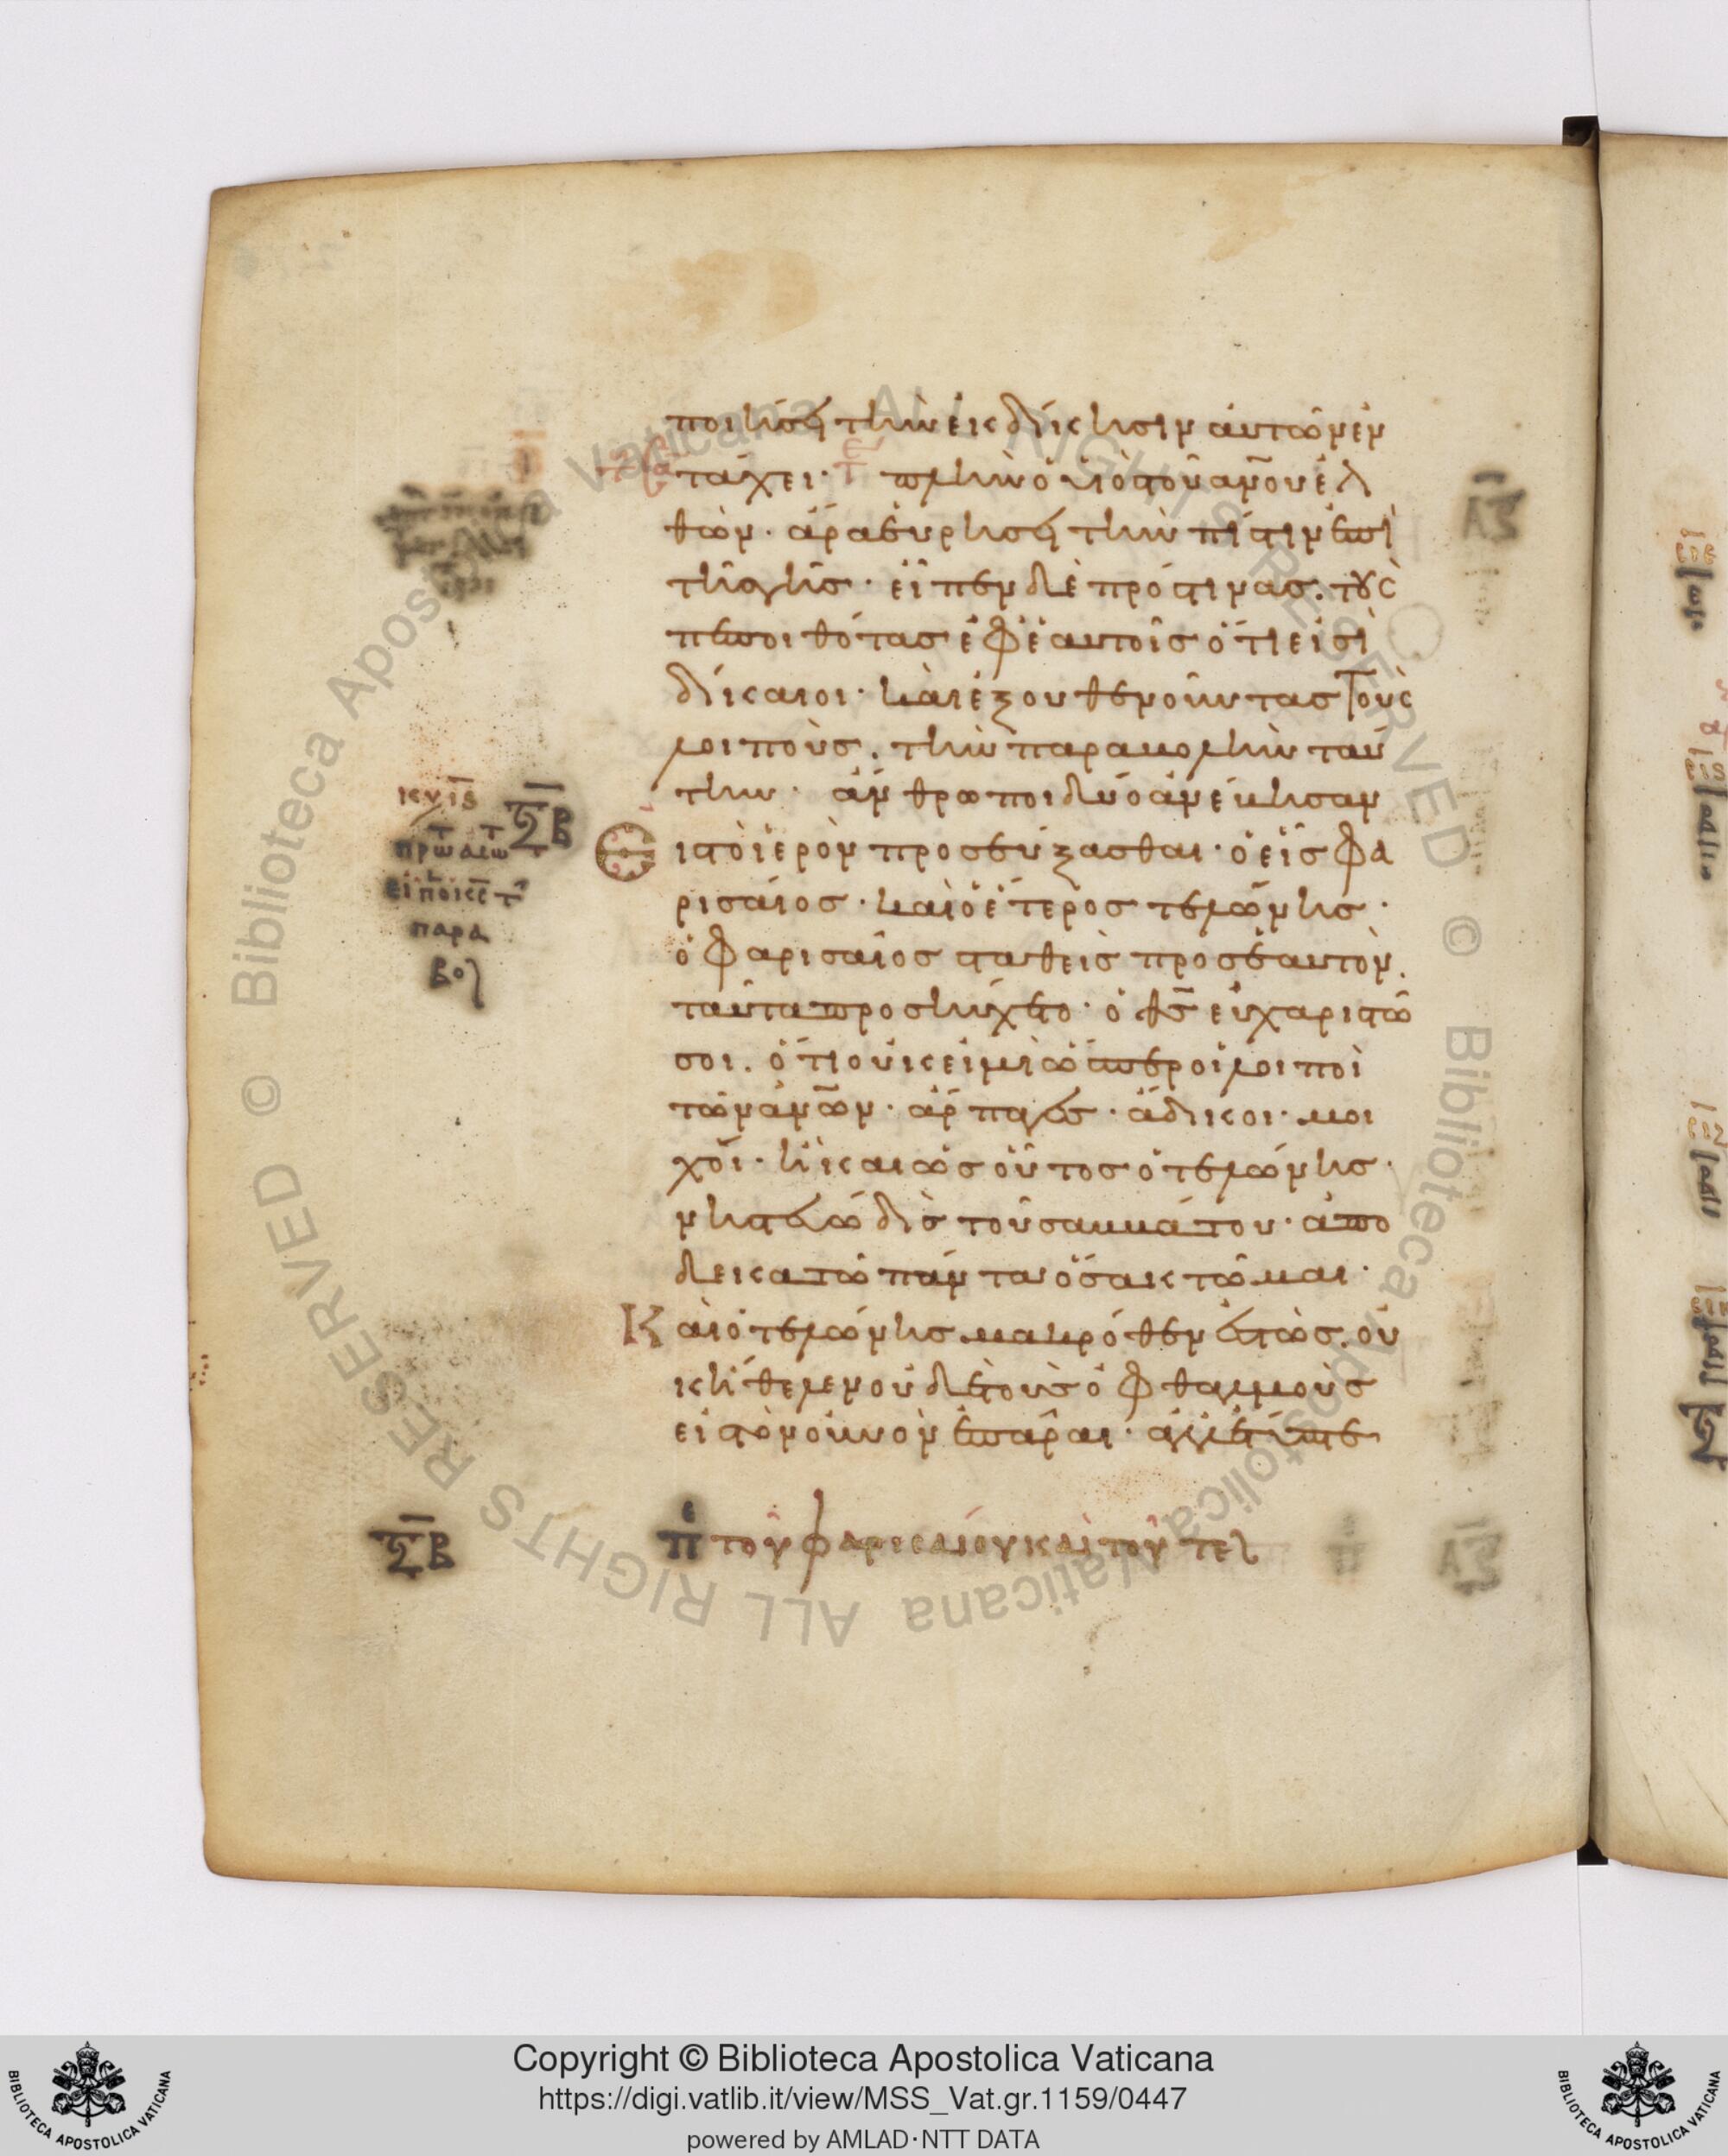 ποιήσει τὴν ἐκδίκησιν αὐτῶν ἐν
τάχει· πλὴν ὁ υἱὸς τοῦ ἀν̅ου ἐλ
θὼν· ἆρα εὑρήσει τὴν πίστιν ἐπὶ
τῆς γῆς· εἶπεν δὲ πρός τινας. τοὺς
πεποιθότας ἐφ' ἑαυτοῖς ὅτι εἰσὶ
δίκαιοι· καὶ ἐξουθενοῦντας τοὺς
λοιποὺς. τὴν παραβολὴν ταύ
την· ἄνθρωποι δύο ἀνέβησαν
εἰς τὸ ἱερὸν προσεύξασθαι· ὁ εἷς φα
ρισαίος· καὶ ὁ ἕτερος τελώνης·
ὁ φαρισαῖος σταθεὶς πρὸς ἑαυτὸν.
ταῦτα προσηύχετο· ὁ θ̅ς εὐχαριστῶ
σοι. ὅτι οὐκ εἰμὶ ὥσπερ οἱ λοιποὶ
τῶν ἀν̅ων· ἅρπαγες· ἄδικοι· μοι
χοί· ἢ καὶ ὡς οὗτος ὁ τελώνης·
νηστεύω δὶς τοῦ σαββάτου· ἀπο
δεκατῶ πάντα ὅσα κτῶμαι·
Καὶ ὁ τελώνης μακρόθεν ἑστὼς. οὐ
κ ἤθελεν οὐδὲ τοὺς ὀφθαλμοὺς
εἰς τὸν οὐνὸν ἐπᾶραι· ἀλλ' ἔτυπτε
κυ ις̅
Σ̅Β
εἶπ ὁ κς τ
παρα
βολ
Σ̅Β
πε τοῦ φαρισαίου καὶ τοῦ τελ
Copyright © Biblioteca Apostolica Vaticana
https://digi.vatlib.it/view/MSS_Vat.gr.1159/0447
powered by AMLAD·NTT DATA
BIBLIOTECA APOSTOLICA VATICANA
BIBLIOTECA APOSTOLICA VATICANA
© Biblioteca Apostolica Vaticana ALL RIGHTS RESERVED © Biblioteca Apostolica Vaticana ALL RIGHTS RESERVED